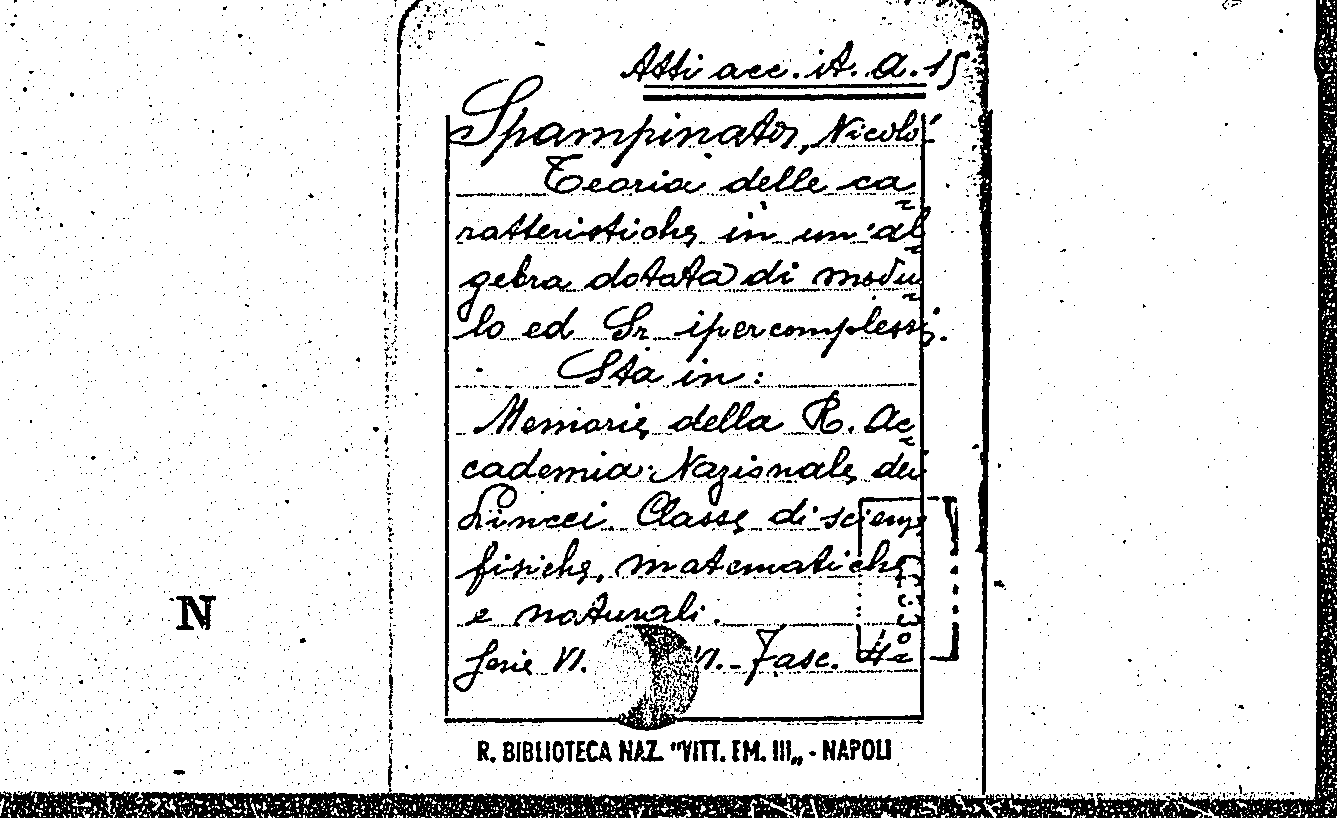 Atti acc. it. A. 15
Spampinato, Nicolò
Teoria delle ca
ratteristiche in un'al
gebra dotata di modu
lo ed Sr ipercomplessi.
Sta in:
Memorie della R. Ac
cademia Nazionale dei
Lincei. Classe di scienze
fisiche, matematiche
e naturali.
Serie VI. VI. - Fasc.
N
R. BIBLIOTECA NAZ. "VITT. EM. III„ - NAPOLI